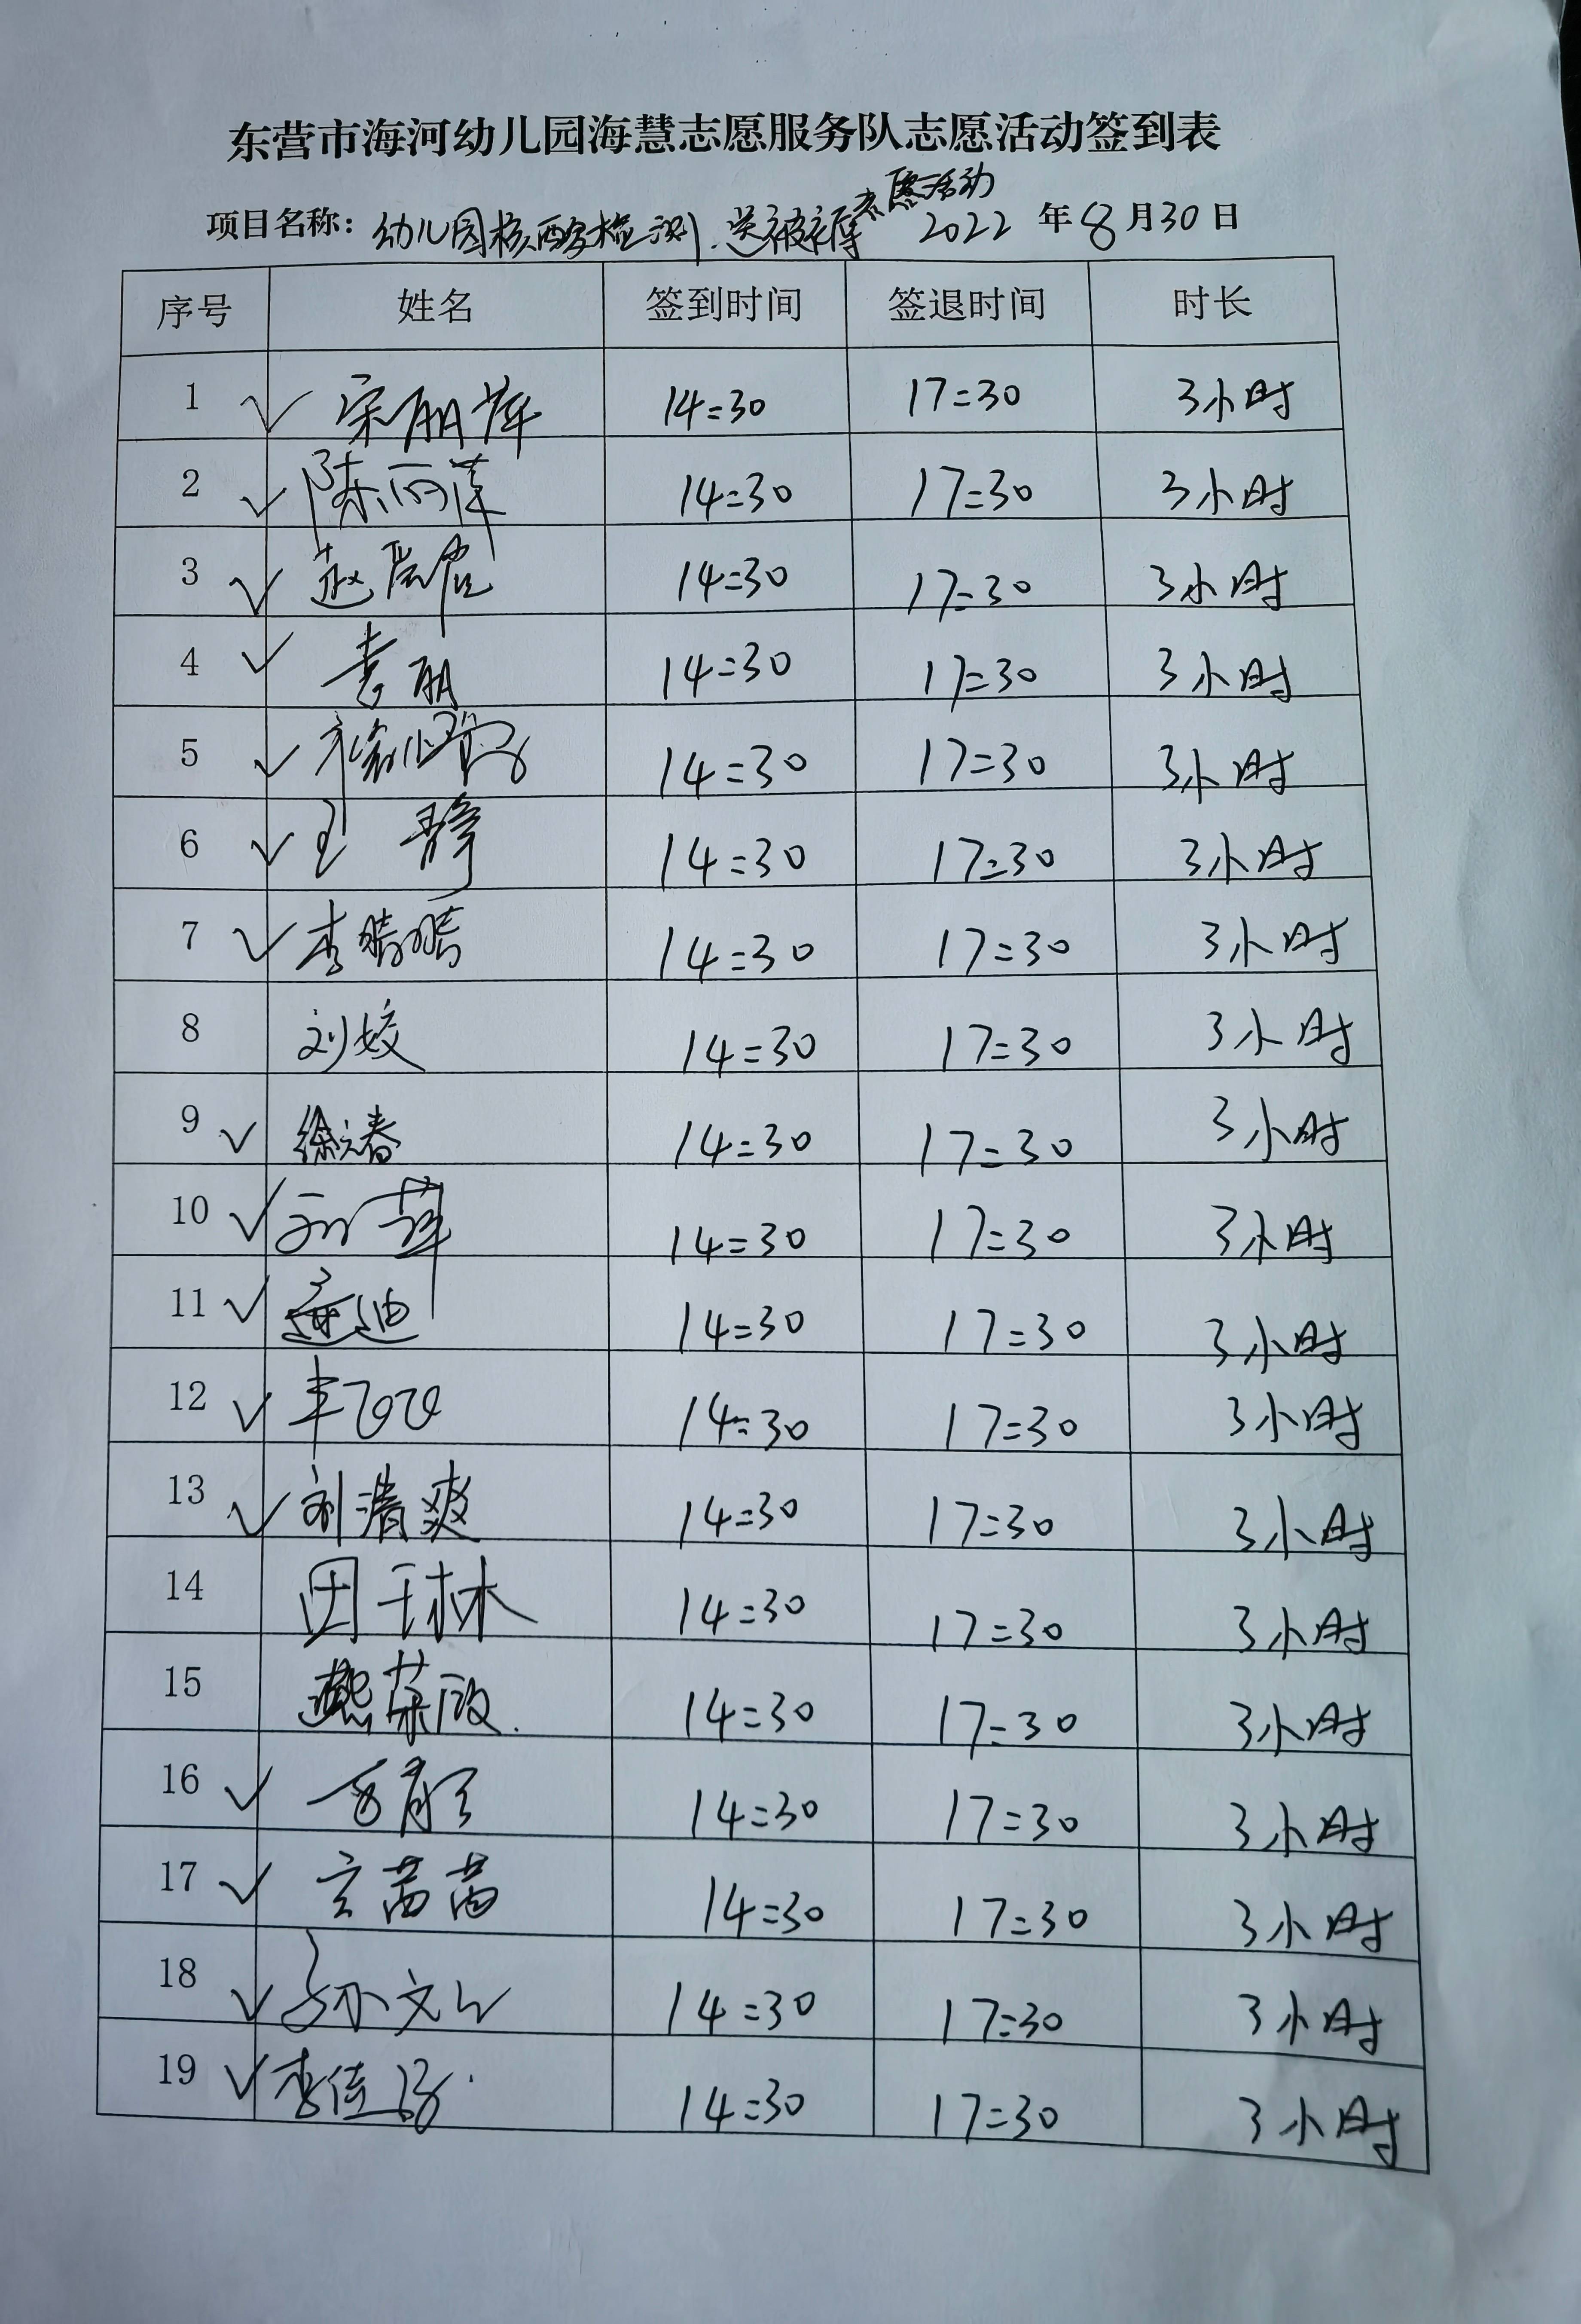 东营市海河幼儿园海慧志愿服务队志愿活动签到表
项目名称：幼儿园核酸检测、送被褥志愿活动 2022年8月30日
序号 姓名 签到时间 签退时间 时长
1 14:30 17:30 3小时
2 陈丽萍 14:30 17:30 3小时
3 14:30 17:30 3小时
4 袁丽 14:30 17:30 3小时
5 14:30 17:30 3小时
6 王静 14:30 17:30 3小时
7 李晴晴 14:30 17:30 3小时
8 刘姣 14:30 17:30 3小时
9 徐春 14:30 17:30 3小时
10 刘萍 14:30 17:30 3小时
11 14:30 17:30 3小时
12 14:30 17:30 3小时
13 刘清爽 14:30 17:30 3小时
14 14:30 17:30 3小时
15 燕荣政 14:30 17:30 3小时
16 14:30 17:30 3小时
17 14:30 17:30 3小时
18 孙文 14:30 17:30 3小时
19 李佳 14:30 17:30 3小时